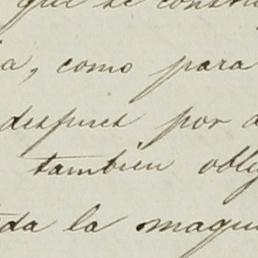 que se constr
a, como para
despues por
tambien oblig
da la maqui